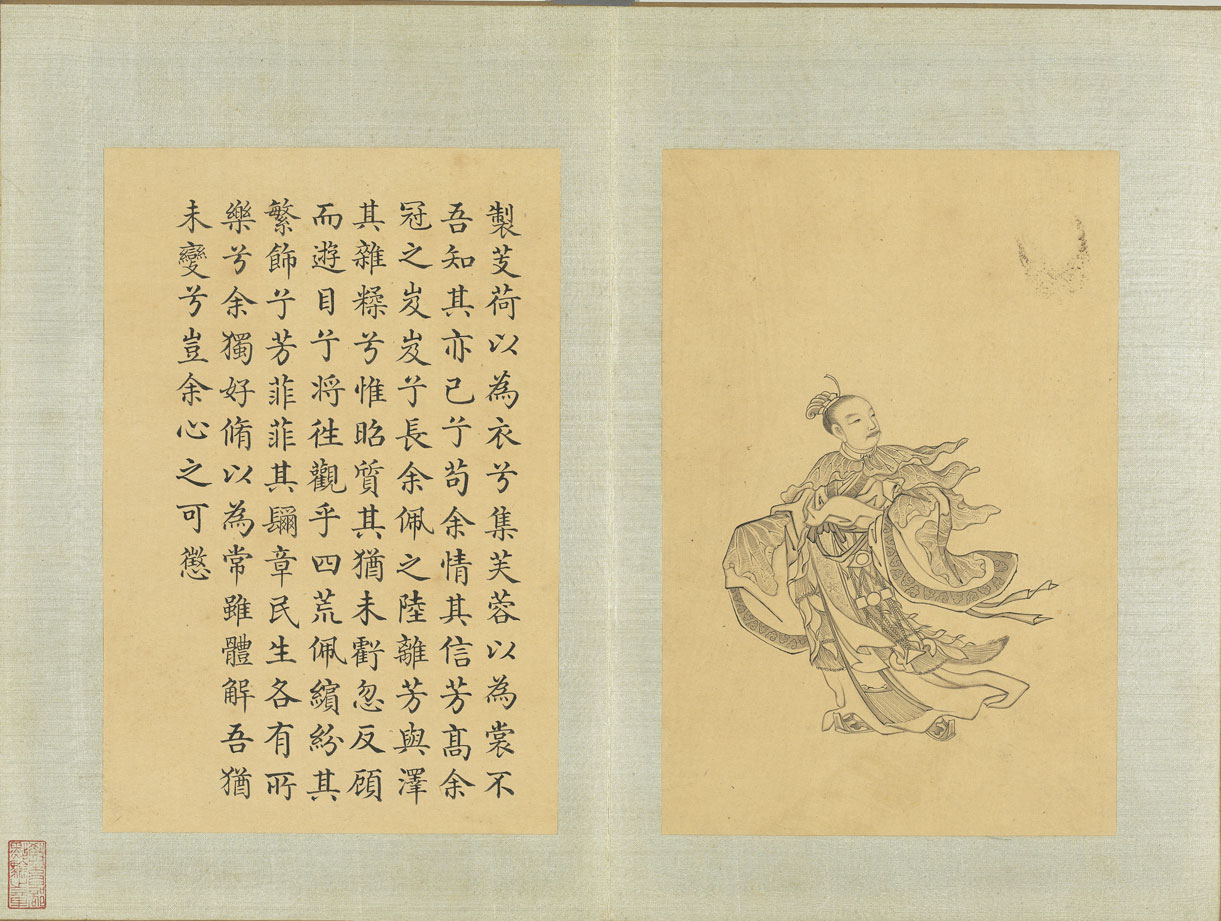 製芰荷以為衣兮集芙蓉以為裳不
吾知其亦已兮苟余情其信芳髙余
冠之岌岌兮長余佩之陸離芳與澤
其雜糅兮惟昭質其猶未虧忽反顧
而遊目兮将往觀乎四荒佩繽紛其
繁飾兮芳菲菲其彌章民生各有所
樂兮余獨好脩以為常雖體解吾猶
未變兮豈余心之可懲